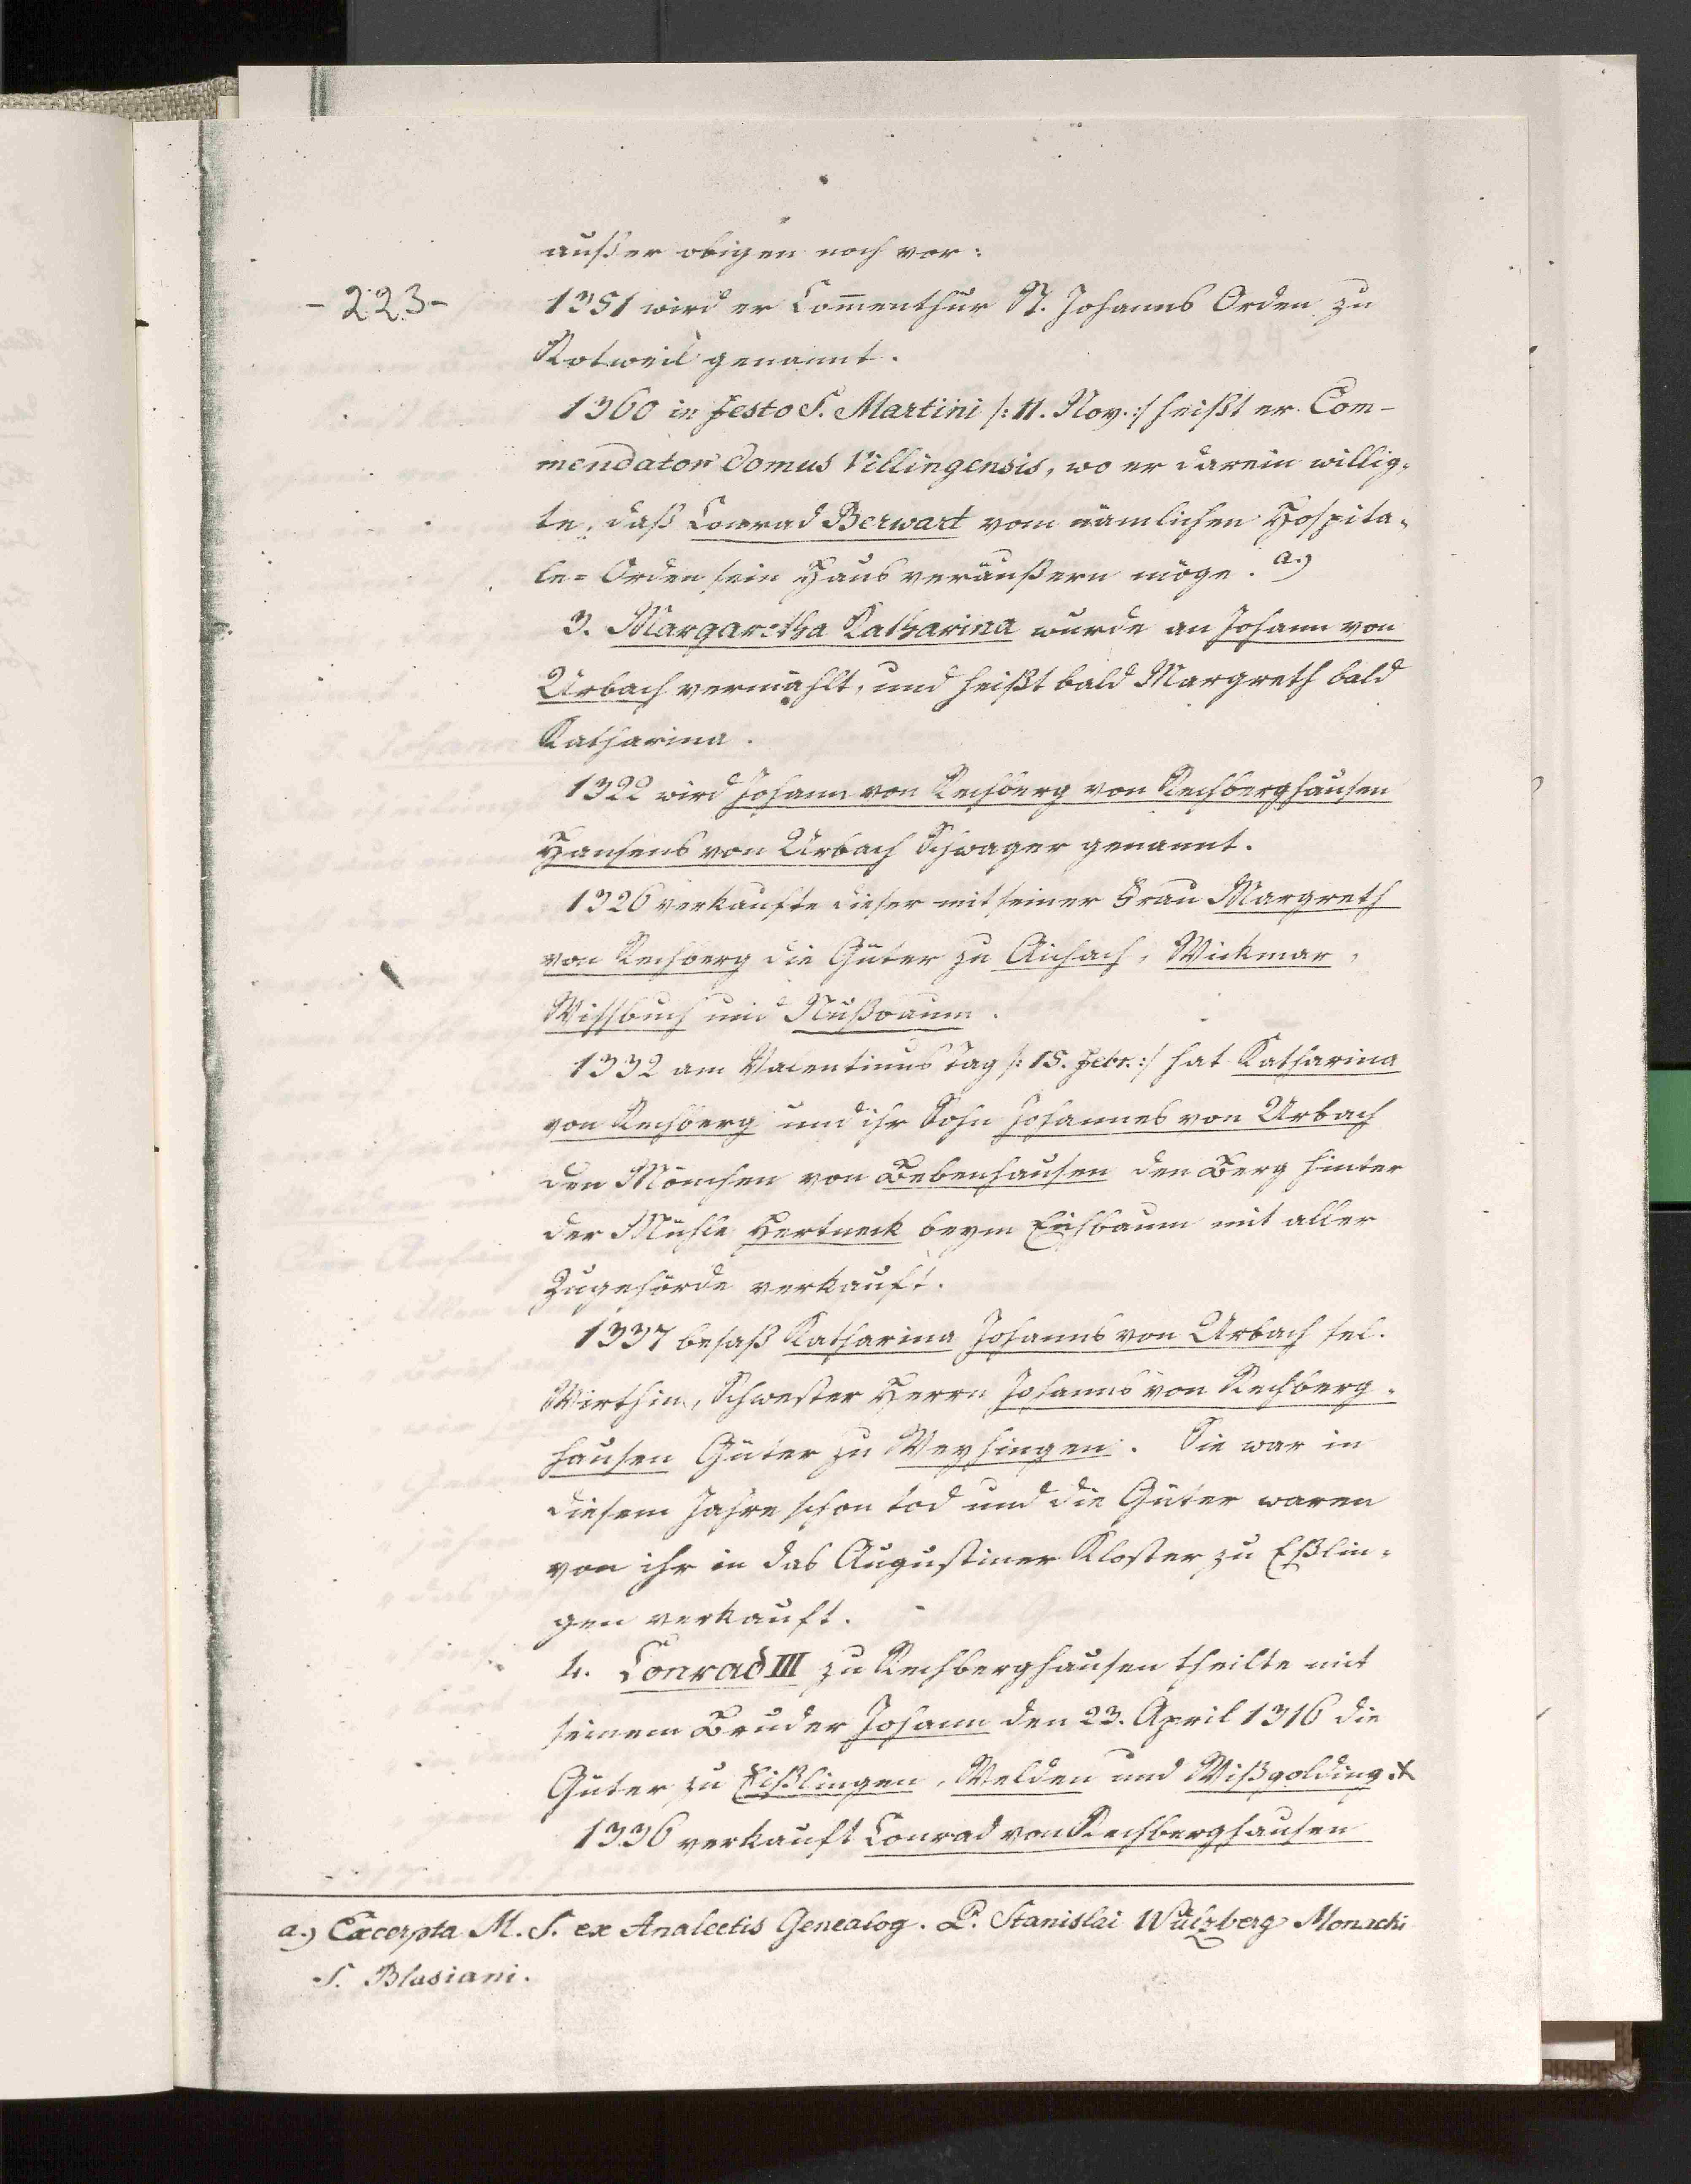 außer obigen noch vor:
- 223 -
1351 wird er Com̅enthur St. Johanns Orden zu
Rotweil genannt.
1360 in Festo S. Martini /: 11. Nov. :/ heißt er Com-
mendator domus Villingensis, wo er darein willig-
te, daß Conrad Berwart vom nämlichen Hospita-
le-Orden sein Haus veräußern möge. a.)
3. Margaretha Katharina wurde an Johann von
Urbach vermählt, und heißt bald Margreth bald
Katharina.
1322 wird Johann von Rechberg von Rechberghausen
Hansens von Urbach Schwager genannt.
1326 verkaufte dieser mit seiner Frau Margreth
von Rechberg die Güter zu Aichach, Wickmar,
und Nußbaum.
1332 am Valentinus Tag /: 15. Febr. :/ hat Katharina
von Rechberg und ihr Sohn Johannes von Urbach
den Mönchen von Bebenhausen den Berg hinter
der Mühle Hertneck beym Eichbaum mit aller
Zugehörde verkauft.
1337 besaß Katharina Johanns von Urbach sel.
Wirthin, Schwester Herrn Johanns von Rechberg-
hausen Güter zu Weyhingen. Sie war in
diesem Jahre schon tod und die Güter waren
von ihr in das Augustiner Kloster zu Eßlin-
gen verkauft.
4. Conrad III zu Rechberghausen theilte mit
seinem Bruder Johann den 23. April 1316 die
Güter zu Eißlingen, Welden und Wißgolding.
1336 verkauft Conrad von Rechberghausen
a.) Excerpta M. S. ex Analectis Genealog. P. Stanislai Wülzberg Monachi
S. Blasiani.